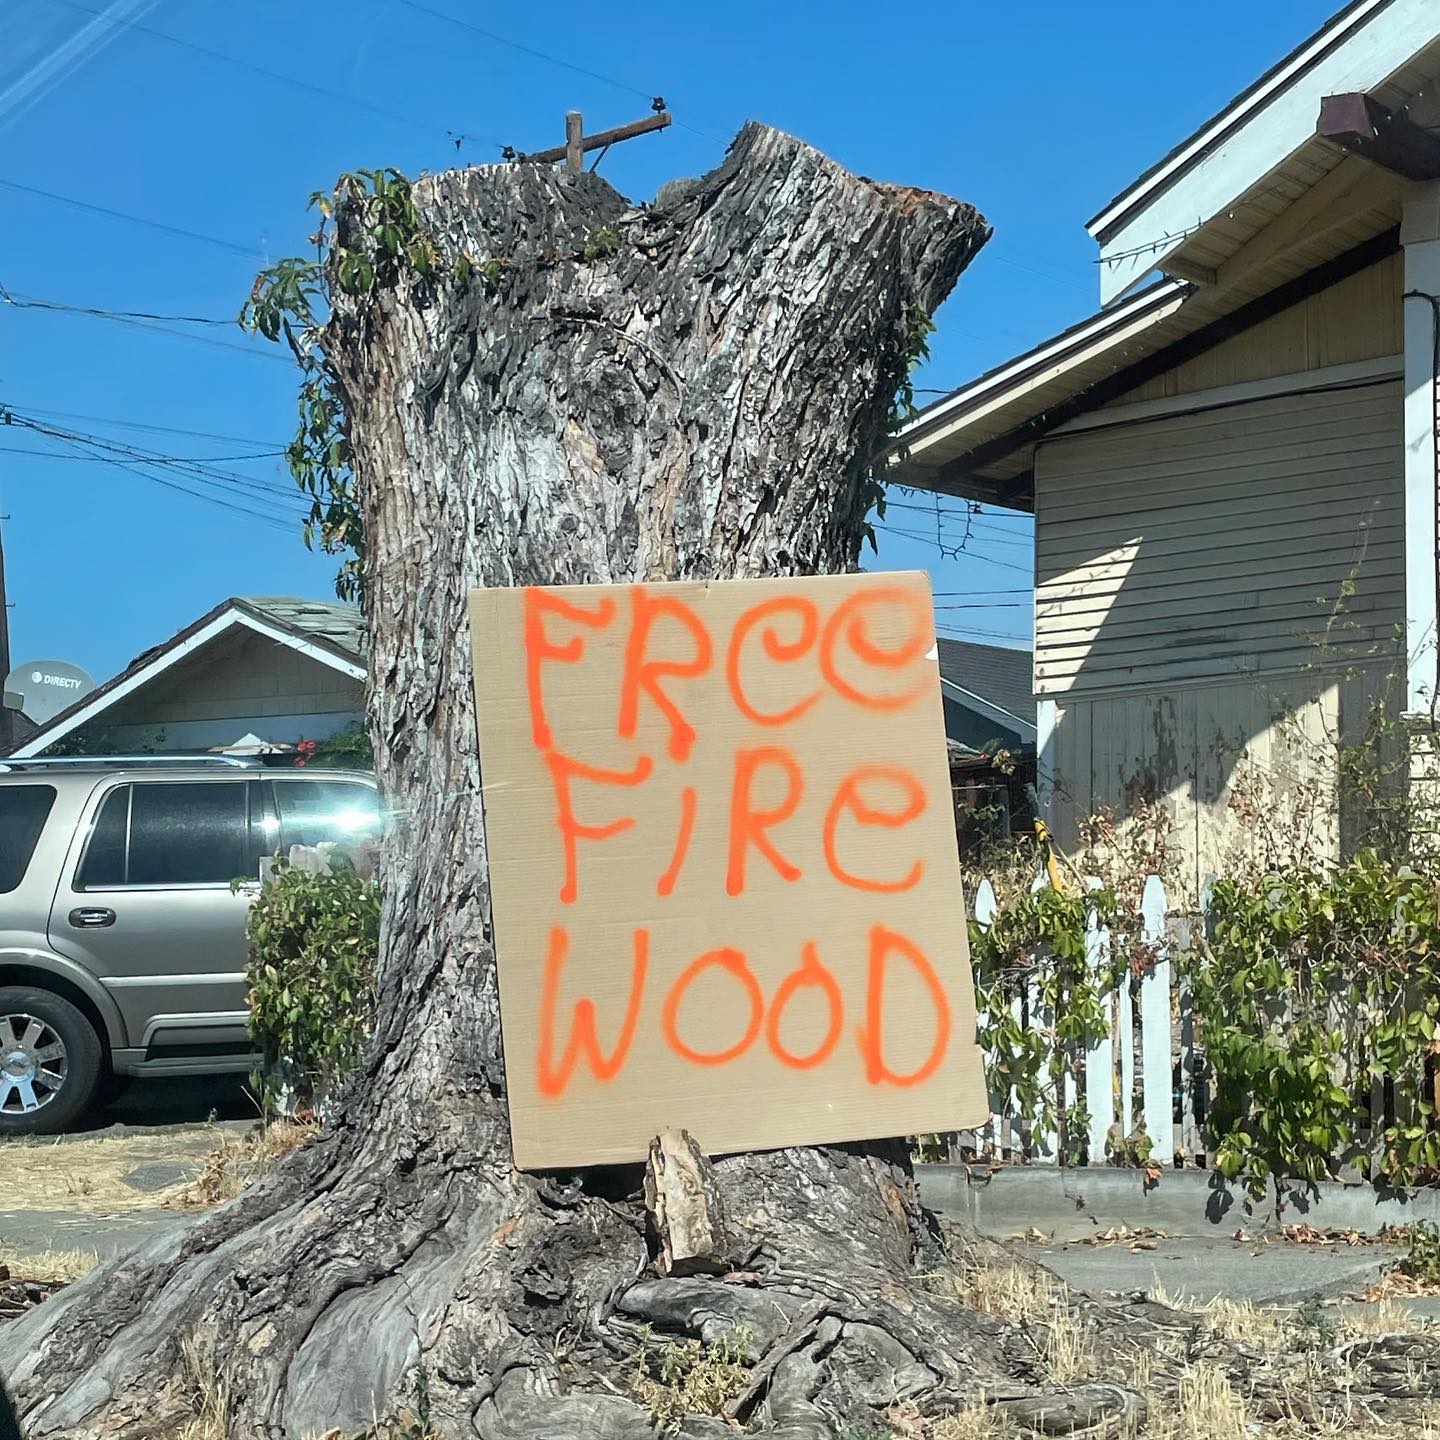 FRee
FiRe
WOOD
DIRECTV